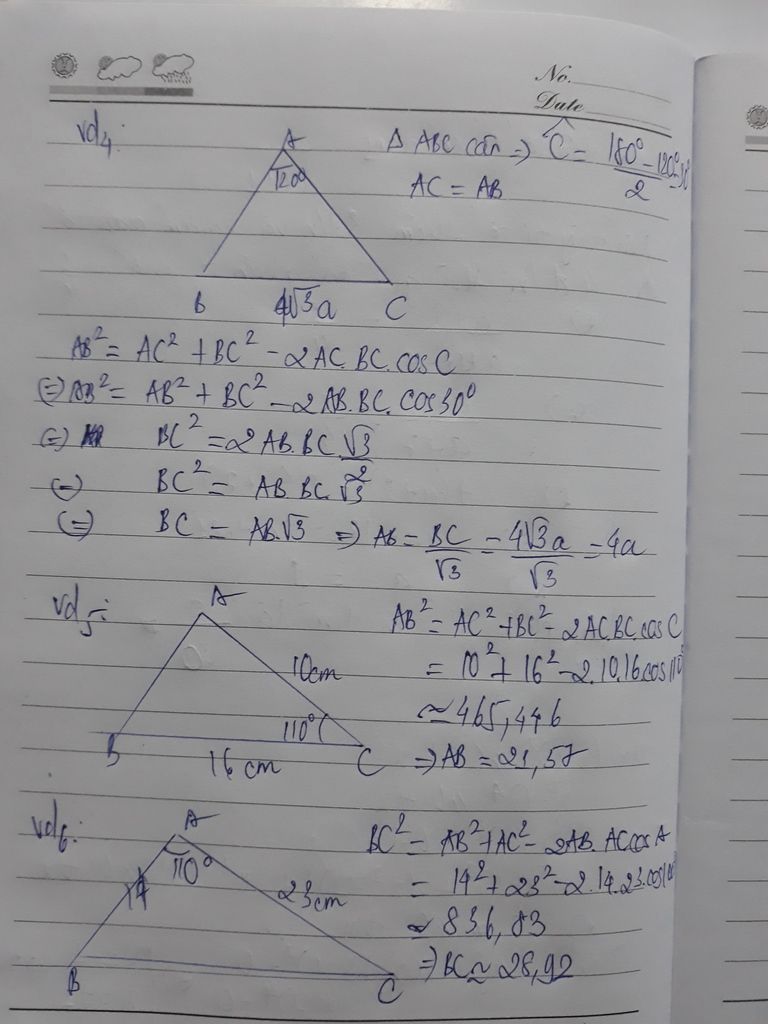 No.
Date
Vd4:
A
120°
B
4√3a
C
Δ ABC cân => Ĉ = (180° - 120°)/2 = 30°
AC = AB
AB² = AC² + BC² - 2AC.BC.cosC
(=) AB² = AB² + BC² - 2AB.BC.cos30°
(=) BC² = 2AB.BC.√3/2
(=) BC² = AB.BC.√3
(=) BC = AB.√3 => AB = BC/√3 = 4√3a/√3 = 4a
Vd5:
A
10cm
110°
B
16 cm
C
AB² = AC² + BC² - 2AC.BC.cosC
= 10² + 16² - 2.10.16cos110°
≈ 465,446
=> AB = 21,57
Vd6:
A
110°
14
23cm
B
C
BC² = AB² + AC² - 2AB.AC cosA
= 14² + 23² - 2.14.23.cos
≈ 836,83
=> BC ≈ 28,92